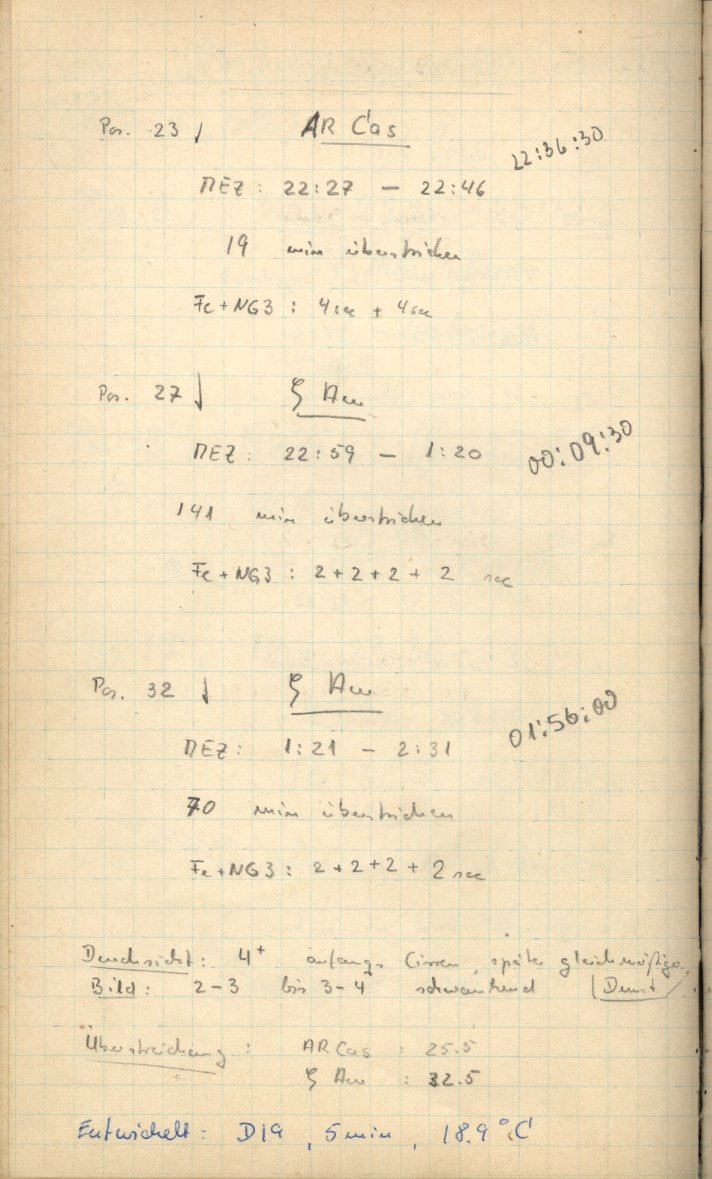 Pos. 23 ↓ AR Cas 22:36:30
MEZ: 22:27 — 22:46
19 min überstrichen
Fe+NG3: 4sec + 4sec
Pos. 27 ↓ ζ Aur
MEZ: 22:59 — 1:20 00:09:30
141 min überstrichen
Fe+NG3: 2+2+2+ 2 sec
Pos. 32 ↓ ζ Aur
MEZ: 1:21 — 2:31 01:56:00
70 min überstrichen
Fe+NG3: 2+2+2+ 2 sec
Durchsicht: 4+ anfangs Cirren, später gleichmäßiger
Bild: 2-3 bis 3-4 schwankend Dunst
Überstreichung: AR Cas : 25.5
ζ Aur : 32.5
Entwickelt: D19, 5 min, 18.9°C